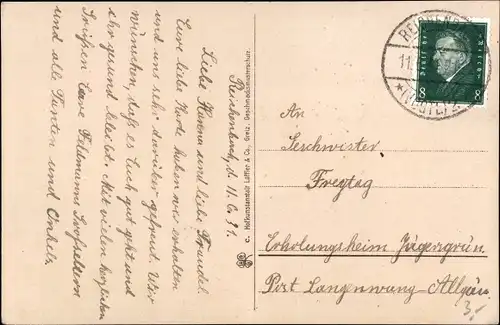 Reichenbach, d. 11. 6. 31.
Liebe Hanna und liebe Traudel.
Eure liebe Karte haben wir erhalten
und uns sehr darüber gefreut. Wir
wünschen, daß es Euch gut geht und
ihr gesund bleibt. Mit vielen herzlichen
Grüßen Eure Feldmanns Großeltern
und alle Tanten und Onkels
C. Hofkunstanstalt Löffler & Co., Greiz. Geschmacksmusterschutz.
REICHENB
11
(VOGTL) 2
DEUTSCHES REICH
8 8
An
Geschwister
Freytag
Erholungsheim Jägergrün
Post Langenwang-Allgäu
3,-